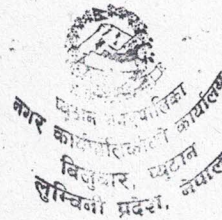 प्युठान नगरपालिका
नगर कार्यपालिकाको कार्यालय
बिजुवार, प्युठान
लुम्बिनी प्रदेश, नेपाल